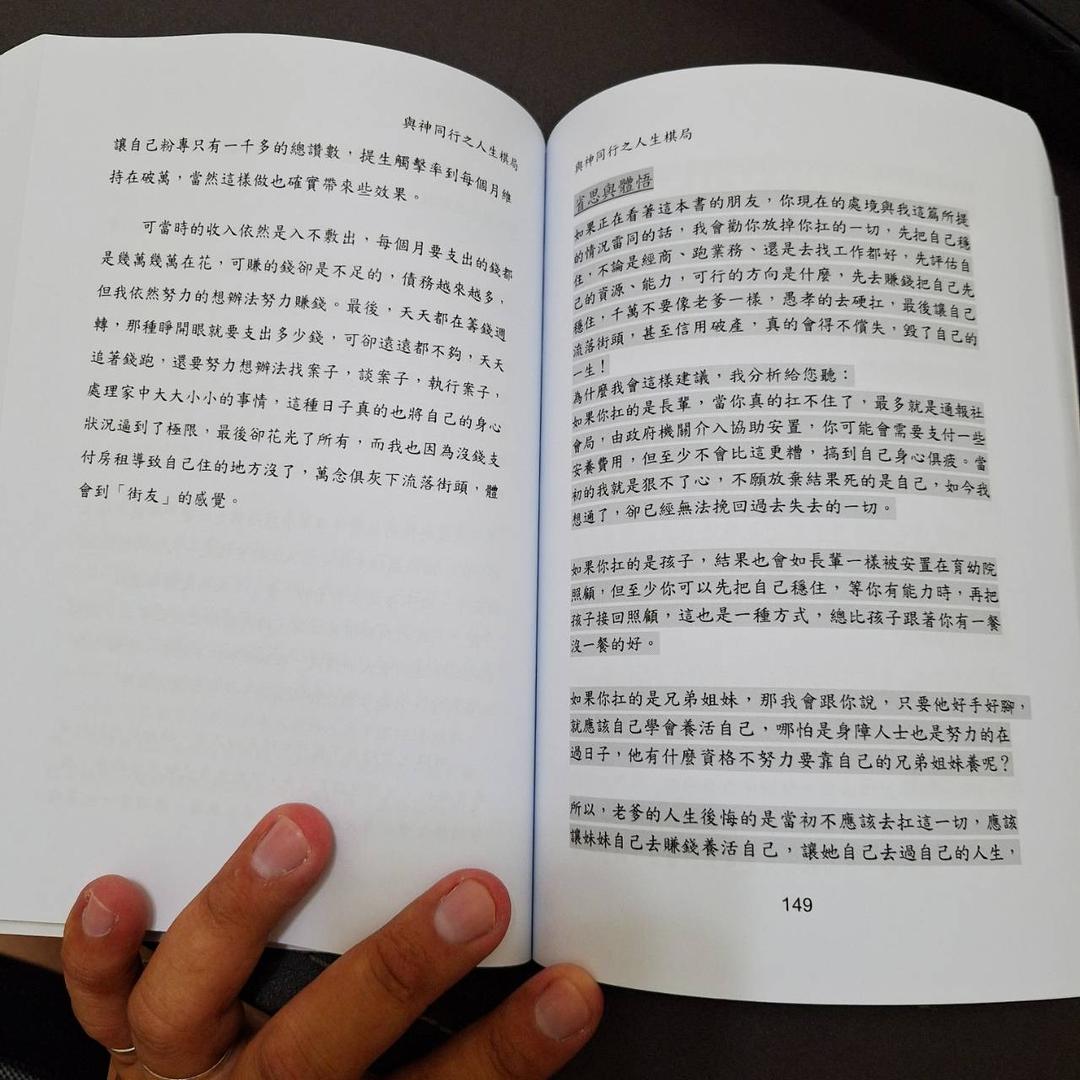 與神同行之人生棋局
讓自己粉專只有一千多的總讚數，提生觸擊率到每個月維
持在破萬，當然這樣做也確實帶來些效果。
可當時的收入依然是入不敷出，每個月要支出的錢都
是幾萬幾萬在花，可賺的錢卻是不足的，債務越來越多，
但我依然努力的想辦法努力賺錢。最後，天天都在籌錢週
轉，那種睜開眼就要支出多少錢，可卻遠遠都不夠，天天
追著錢跑，還要努力想辦法找案子，談案子，執行案子，
處理家中大大小小的事情，這種日子真的也將自己的身心
狀況逼到了極限，最後卻花光了所有，而我也因為沒錢支
付房租導致自己住的地方沒了，萬念俱灰下流落街頭，體
會到「街友」的感覺。
與神同行之人生棋局
省思與體悟
如果正在看著這本書的朋友，你現在的處境與我這篇所提
的情況雷同的話，我會勸你放掉你扛的一切，先把自己穩
住，不論是經商、跑業務、還是去找工作都好，先評估自
己的資源、能力，可行的方向是什麼，先去賺錢把自己先
穩住，千萬不要像老爹一樣，愚孝的去硬扛，最後讓自己
流落街頭，甚至信用破產，真的會得不償失，毀了自己的
一生！
為什麼我會這樣建議，我分析給您聽：
如果你扛的是長輩，當你真的扛不住了，最多就是通報社
會局，由政府機關介入協助安置，你可能會需要支付一些
安養費用，但至少不會比這更糟，搞到自己身心俱疲。當
初的我就是狠不了心，不願放棄結果死的是自己，如今我
想通了，卻已經無法挽回過去失去的一切。
如果你扛的是孩子，結果也會如長輩一樣被安置在育幼院
照顧，但至少你可以先把自己穩住，等你有能力時，再把
孩子接回照顧，這也是一種方式，總比孩子跟著你有一餐
沒一餐的好。
如果你扛的是兄弟姐妹，那我會跟你說，只要他好手好腳，
就應該自己學會養活自己，哪怕是身障人士也是努力的在
過日子，他有什麼資格不努力要靠自己的兄弟姐妹養呢？
所以，老爹的人生後悔的是當初不應該去扛這一切，應該
讓妹妹自己去賺錢養活自己，讓她自己去過自己的人生，
149